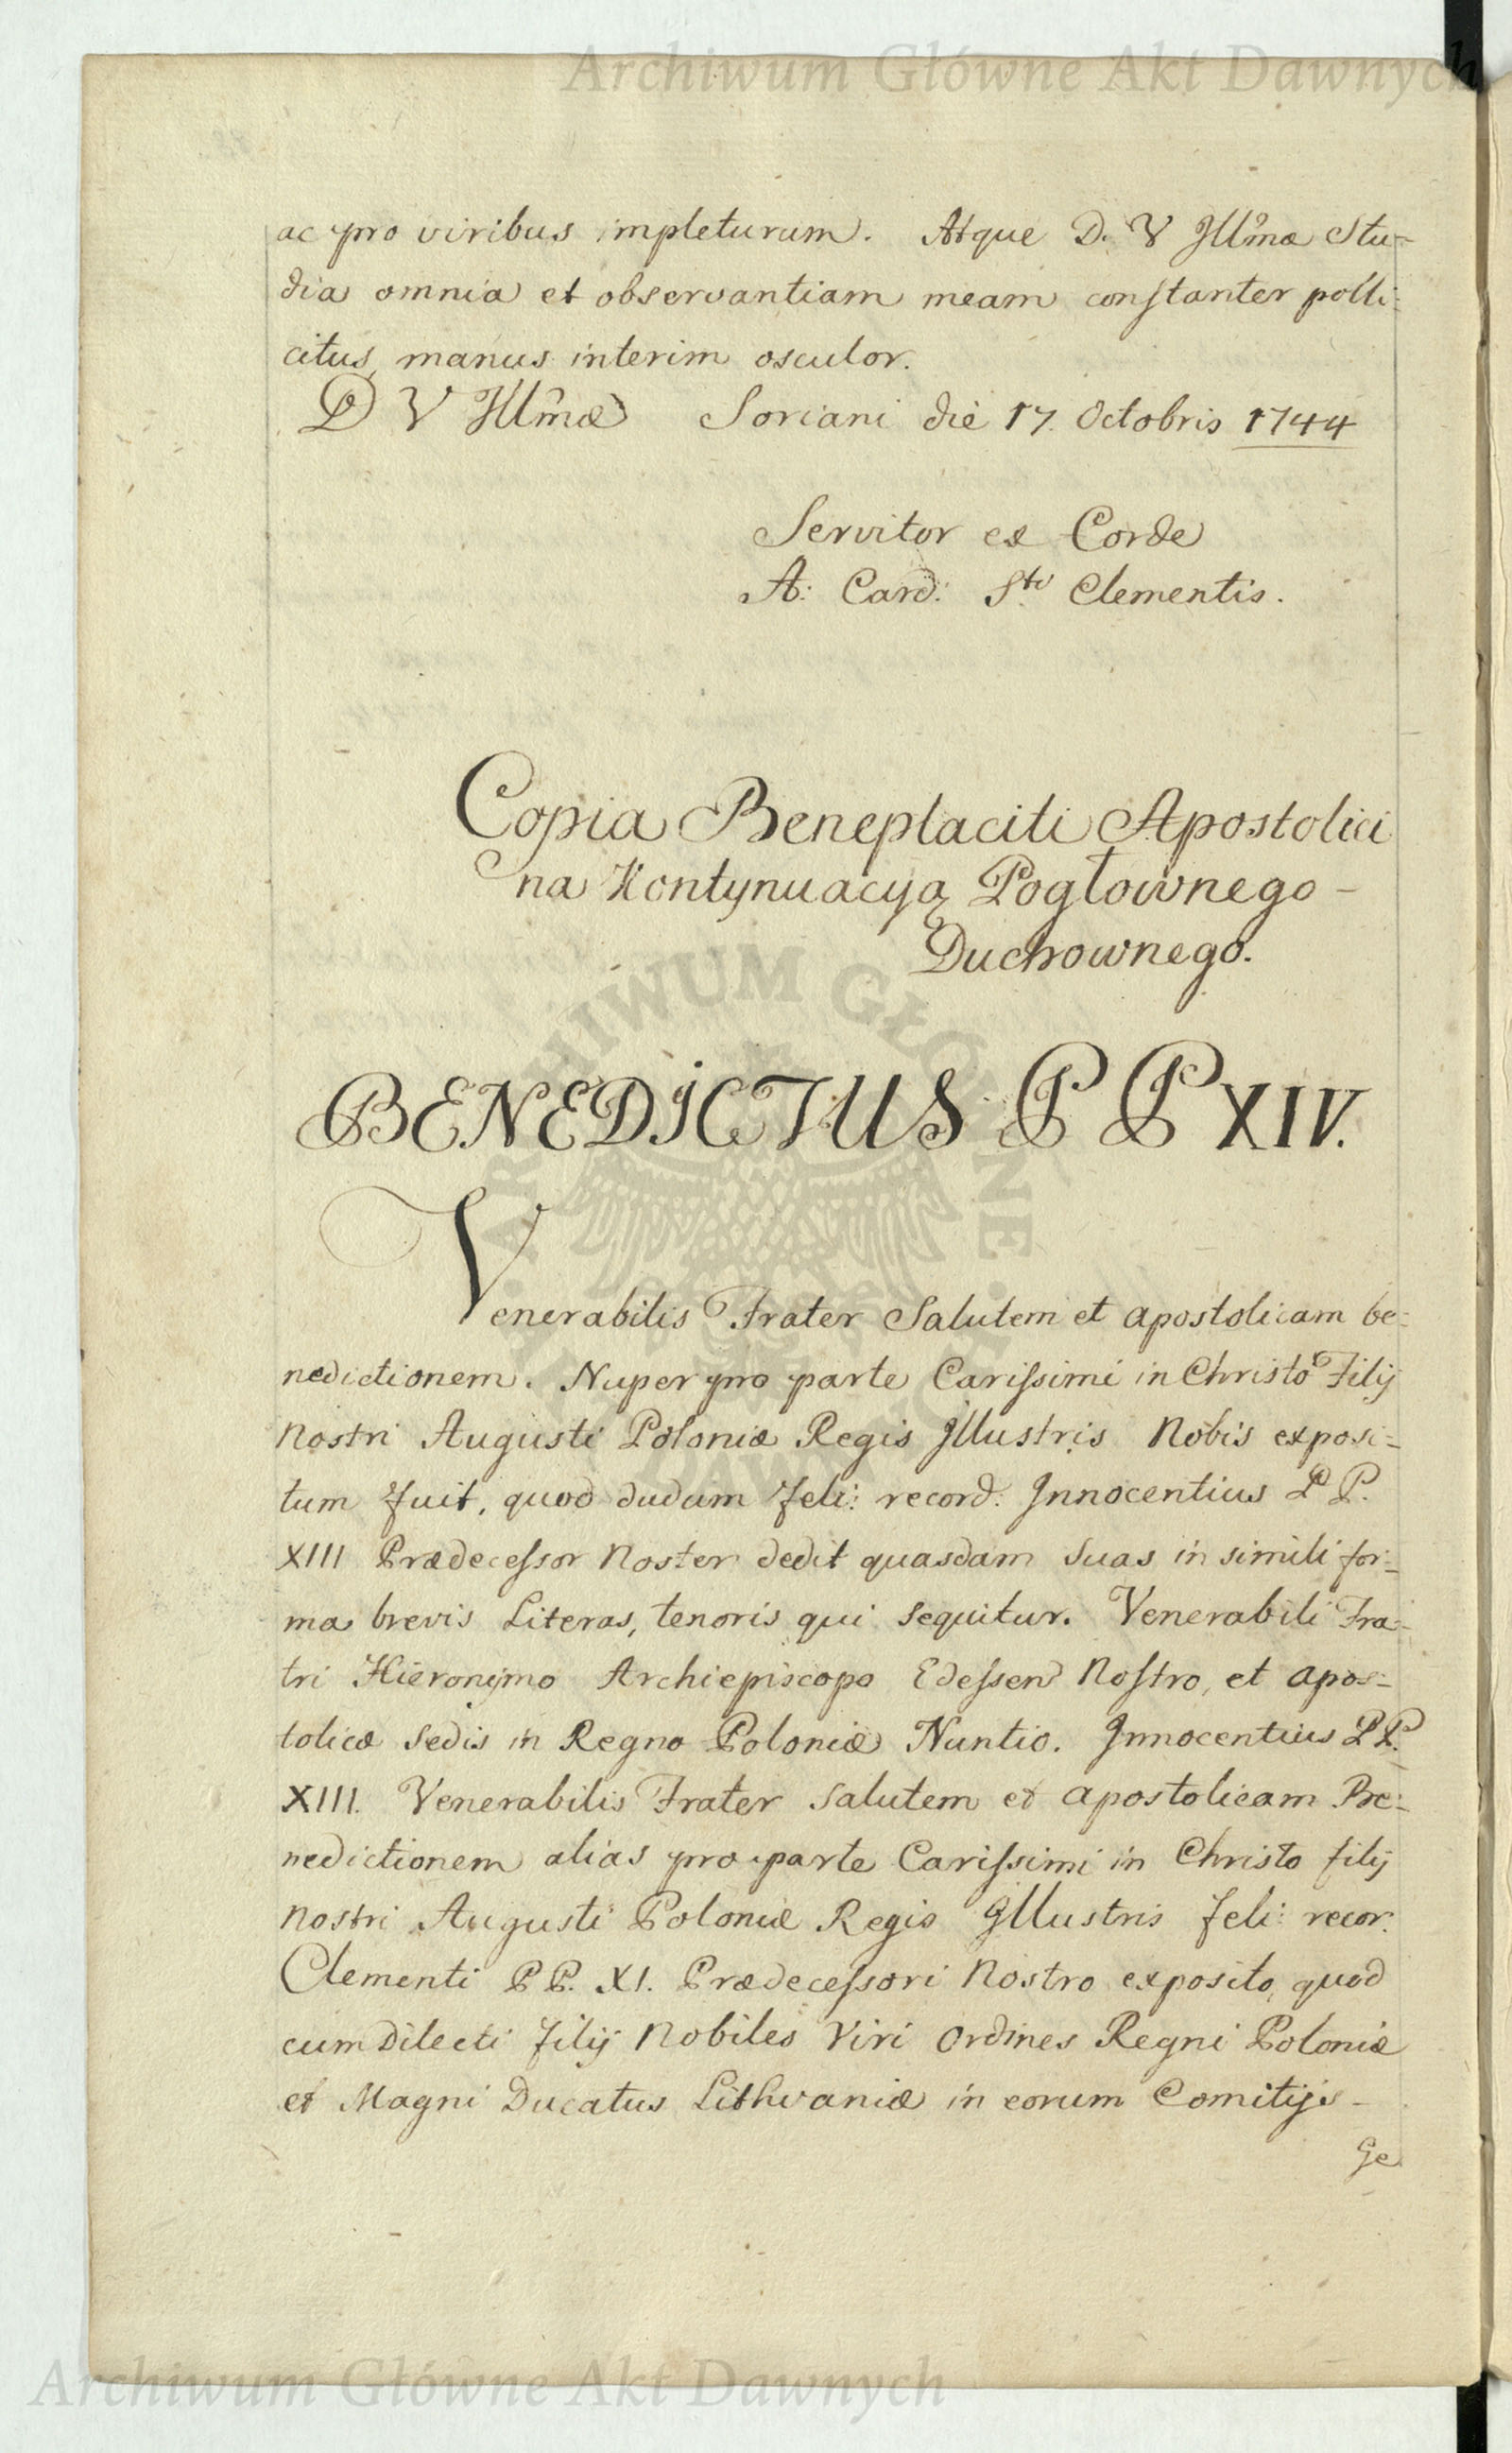 Archiwum Główne Akt Dawnych
ac pro viribus impleturum. Atque D. V Jllm̃æ Stu-
dia omnia et observantiam meam constanter polli:
citus, manus interim osculor.
D V Jllm̃æ Soriani die 17. Octobris 1744
Servitor ex Corde
A: Card: Sti Clementis.
Copia Beneplaciti Apostolici
na Kontynuacyą Pogłownego -
Duchownego.
BENEDICTUS PP XIV.
Venerabilis Frater Salutem et apostolicam be-
nedictionem. Nuper pro parte Carissimi in Christo Filij
Nostri Augusti Poloniæ Regis Jllustris Nobis exposi-
tum fuit, quod dudum feli: record: Jnnocentius PP.
XIII Prædecessor Noster dedit quasdam Suas in simili for-
ma brevis Literas, tenoris qui sequitur. Venerabili Fra-
tri Hieronymo Archiepiscopo Edessen Nostro, et apos-
tolicæ Sedis in Regno Poloniæ Nuntio. Jnnocentius PP.
XIII. Venerabilis Frater Salutem et apostolicam Be-
nedictionem alias pro parte Carissimi in Christo filij
nostri Augusti Poloniæ Regis Jllustris feli: recor:
Clementi PP. XI. Prædecessori Nostro exposito, quod
cum Dilecti filij Nobiles Viri Ordines Regni Poloniæ
et Magni Ducatus Lithvaniæ in eorum Comitijs -
Ge
ARCHIWUM GŁÓWNE
AKT DAWNYCH
Archiwum Główne Akt Dawnych